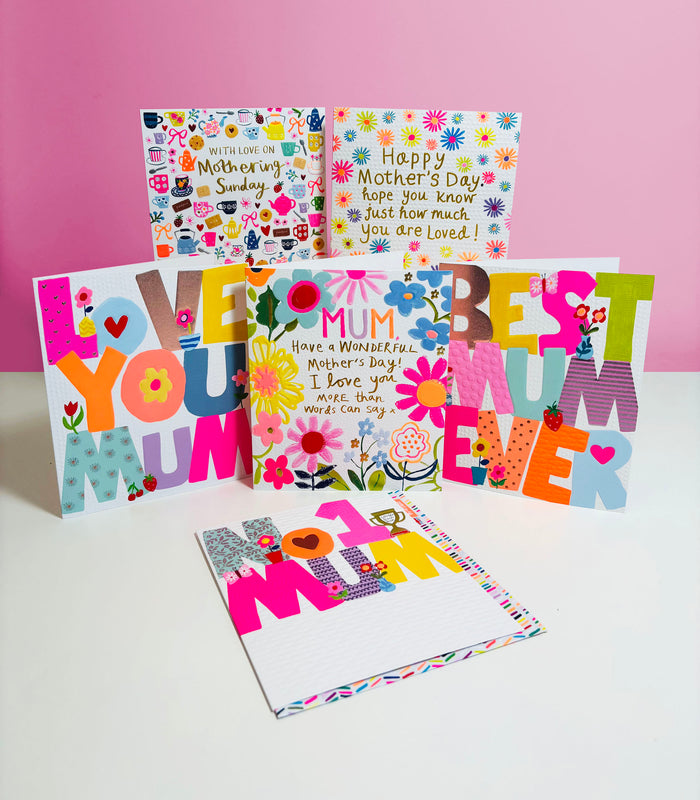 WITH LOVE ON
Mothering
Sunday
Happy
Mother's Day.
hope you know
just how much
you are Loved!
LOVE
YOU
MUM
MUM,
Have a WONDERFUL
Mother's Day!
I love you
MORE than
words can say x
BEST
MUM
EVER
No1
MUM